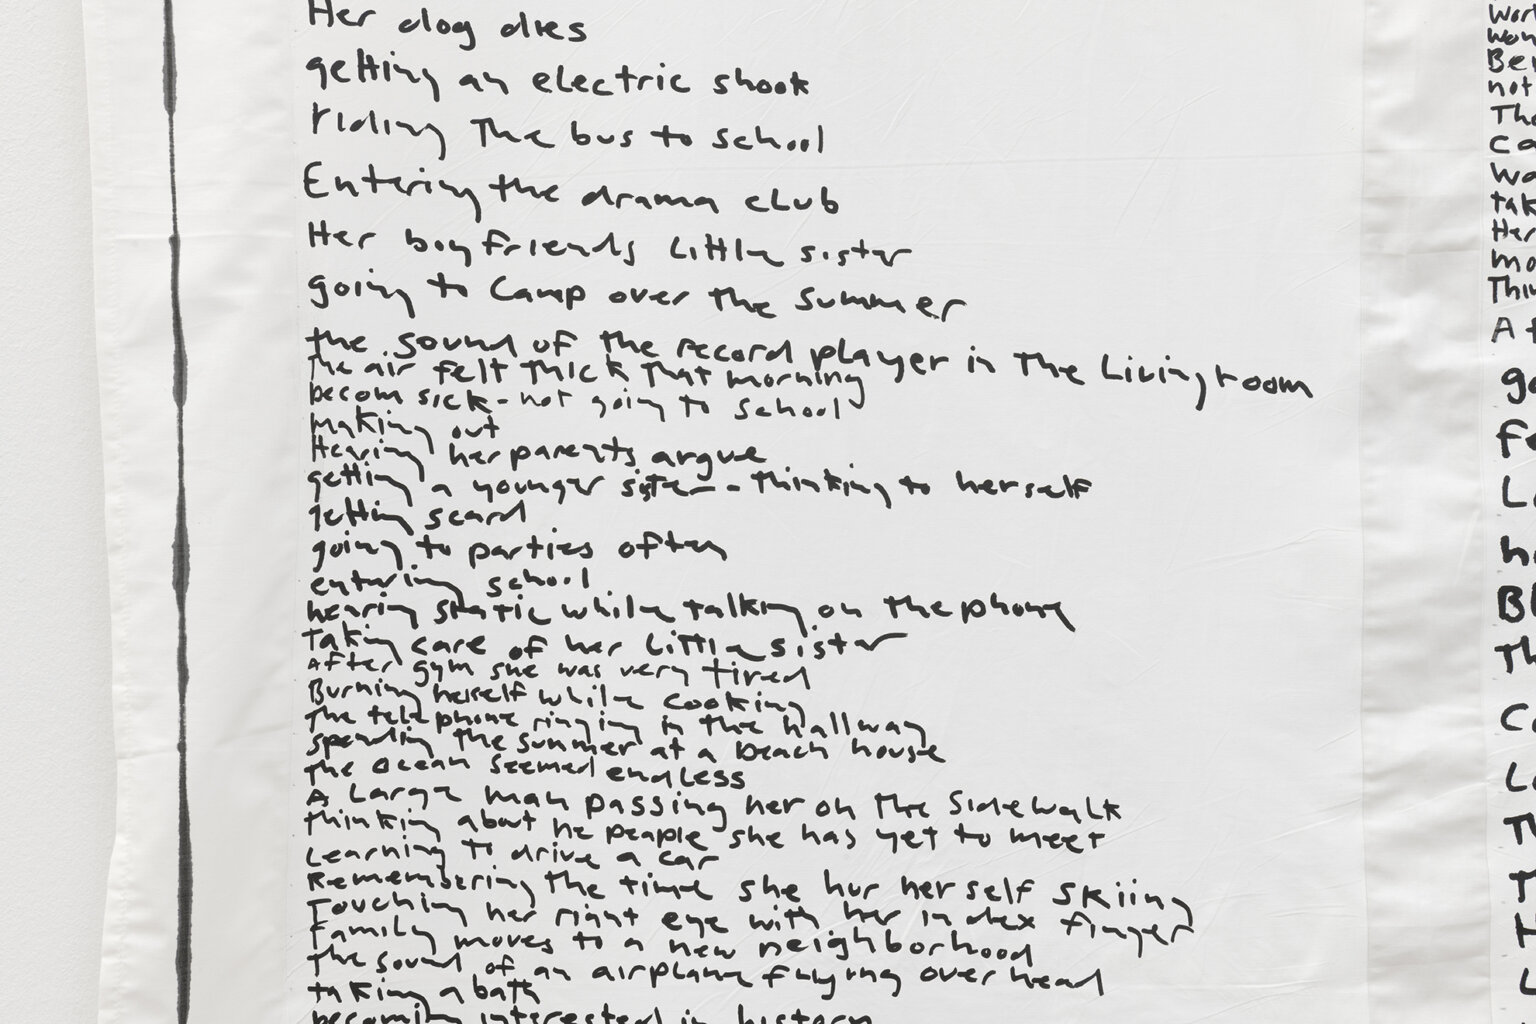 Her dog dies
getting an electric shook
riding The bus to school
Entering the drama club
Her boyfriends Little sister
going to Camp over the Summer
the sound of the record player in The Livingroom
The air felt thick that morning
becom sick - not going to school
making out
Hearing her parents argue
getting a younger sister - thinking to herself
getting scard
going to parties often
enturing school
hearing static while talking on the phone
taking care of her Little sister
After gym she was very tired
Burning herself while cooking
The telephone ringing in the hallway
spending the summer at a beach house
The ocean seemed endless
A Large man passing her on the Sidewalk
thinking about he people she has yet to meet
Learning to drive a car
Remembering the time she hur herself skiing
Touching her right eye with her index finger
Family moves to a new neighborhood
The sound of an airplane flying over head
taking a bath
becoming interested in history
not
A